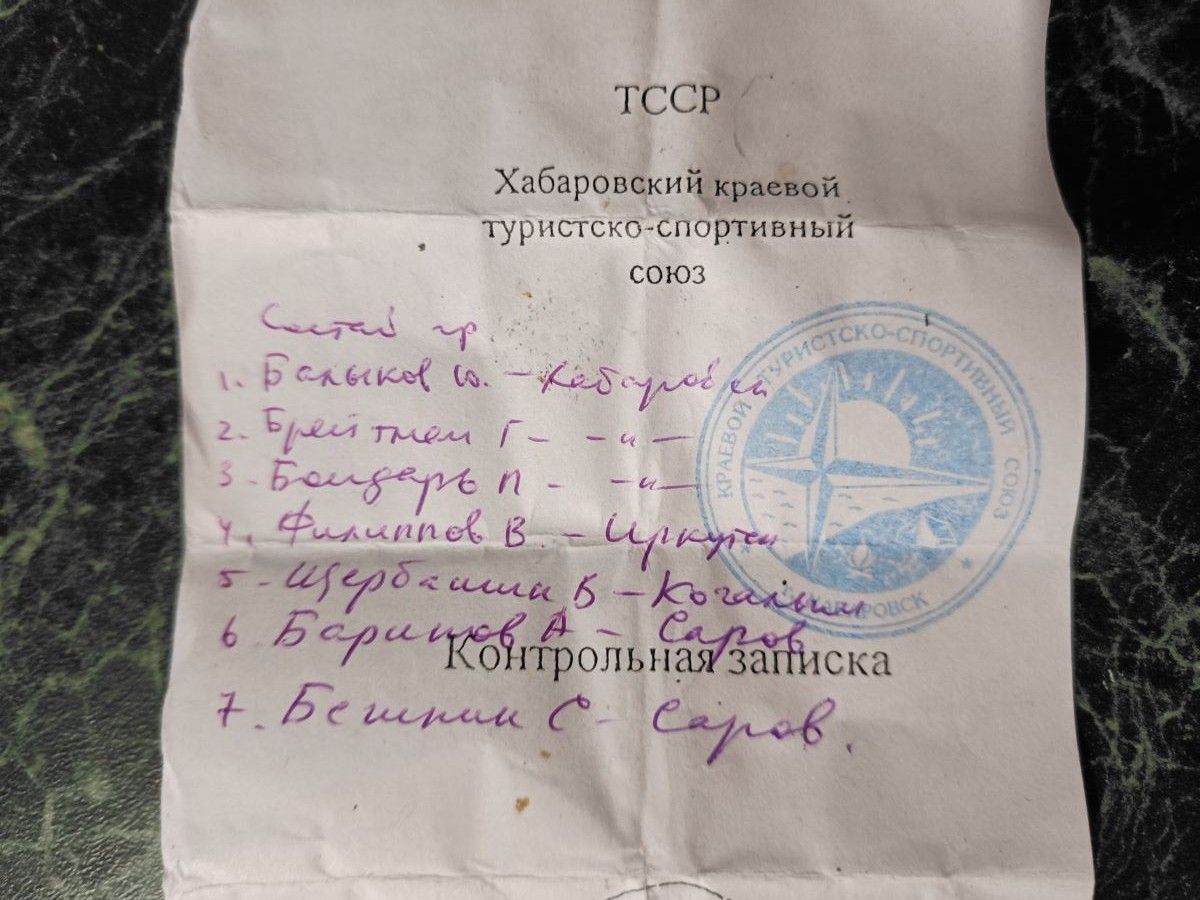 ТССР
Хабаровский краевой
туристско-спортивный
союз
Состав гр
1. Балыков Ю. - Хабаровск
2. Г - -"-
3. Бондарь П - -"-
4. Филиппов В. - Иркутск
5 - В - Когалым
6 А - Саров
7. С - Саров.
Контрольная записка
КРАЕВОЙ ТУРИСТСКО-СПОРТИВНЫЙ СОЮЗ
* ХАБАРОВСК *